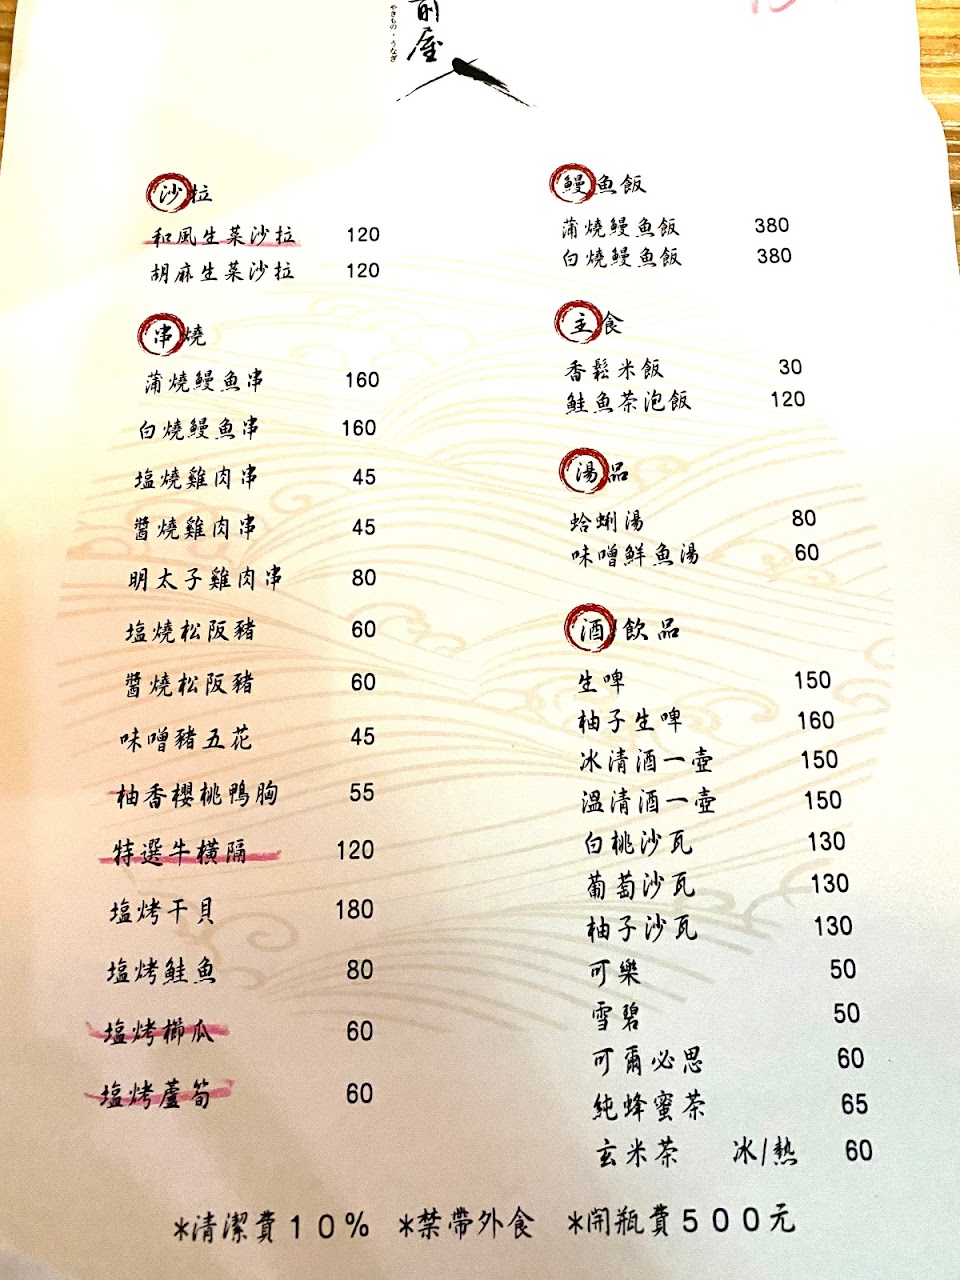 前屋
やきもの・うなぎ
沙拉
和風生菜沙拉 120
胡麻生菜沙拉 120
串燒
蒲燒鰻魚串 160
白燒鰻魚串 160
塩燒雞肉串 45
醬燒雞肉串 45
明太子雞肉串 80
塩燒松阪豬 60
醬燒松阪豬 60
味噌豬五花 45
柚香櫻桃鴨胸 55
特選牛橫隔 120
塩烤干貝 180
塩烤鮭魚 80
塩烤櫛瓜 60
塩烤蘆筍 60
鰻魚飯
蒲燒鰻魚飯 380
白燒鰻魚飯 380
主食
香鬆米飯 30
鮭魚茶泡飯 120
湯品
蛤蜊湯 80
味噌鮮魚湯 60
酒/飲品
生啤 150
柚子生啤 160
冰清酒一壺 150
溫清酒一壺 150
白桃沙瓦 130
葡萄沙瓦 130
柚子沙瓦 130
可樂 50
雪碧 50
可爾必思 60
純蜂蜜茶 65
玄米茶 冰/熱 60
*清潔費10% *禁帶外食 *開瓶費500元